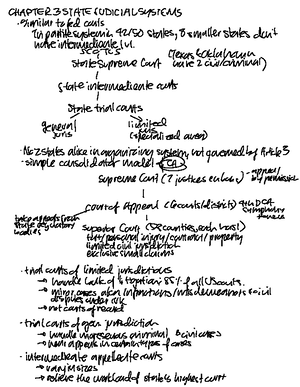 CHAPTER 3 STATE JUDICIAL SYSTEMS
• Similar to fed courts
in 42/50 states, 8 smaller states don't
have intermediate lvl.
(Texas & Oklahoma
State Supreme Court have 2 civil/criminal)
State intermediate courts
State trial courts
general limited
juris juris
(specialized areas)
• No 2 states alike in organizing system, not governed by Article 3
• simple consolidated model → CA
Supreme Court (7 justices en banc) → appeal/
by permission
Court of Appeal (6 courts/districts)
take appeals from
state regulatory
bodies
Superior Court (58 counties, each has 1)
tort/personal injury/contract/property
limited civil jurisdiction
exclusive small claims
• trial courts of limited jurisdictions
→ handle bulk of litigation 85% of all US courts.
→ minor cases infractions/misdemeanors & civil
disputes under
→ not courts of record
• trial courts of gen jurisdiction
→ handle more serious criminal & civil cases
→ hear appeals in certain types of cases
• intermediate appellate courts
→ vary in sizes
→ relieve the workload of state's highest court